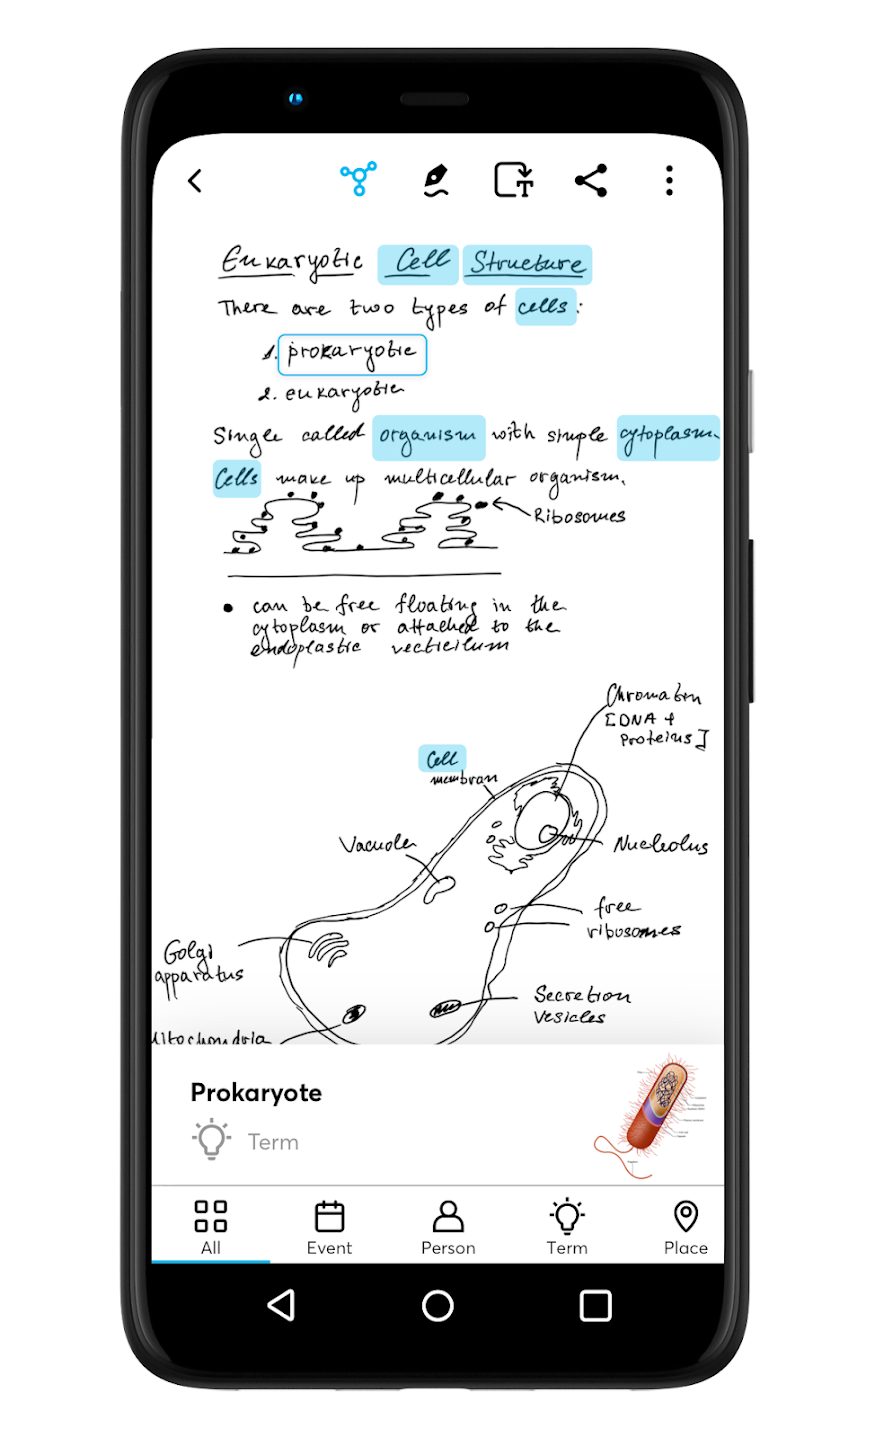 Eukaryotic Cell Structure
There are two types of cells:
1. prokaryotic
2. eukaryotic
Single called organism with simple cytoplasm.
Cells make up multicellular organism.
Ribosomes
• can be free floating in the
cytoplasm or attached to the
endoplastic vecticilum
Chromatin
[DNA +
Proteins]
Cell
membran
Vacuole
Nucleolus
free
ribosomes
Golgi
apparatus
Secretion
vesicles
Mitochondria
Prokaryote
Term
All
Event
Person
Term
Place